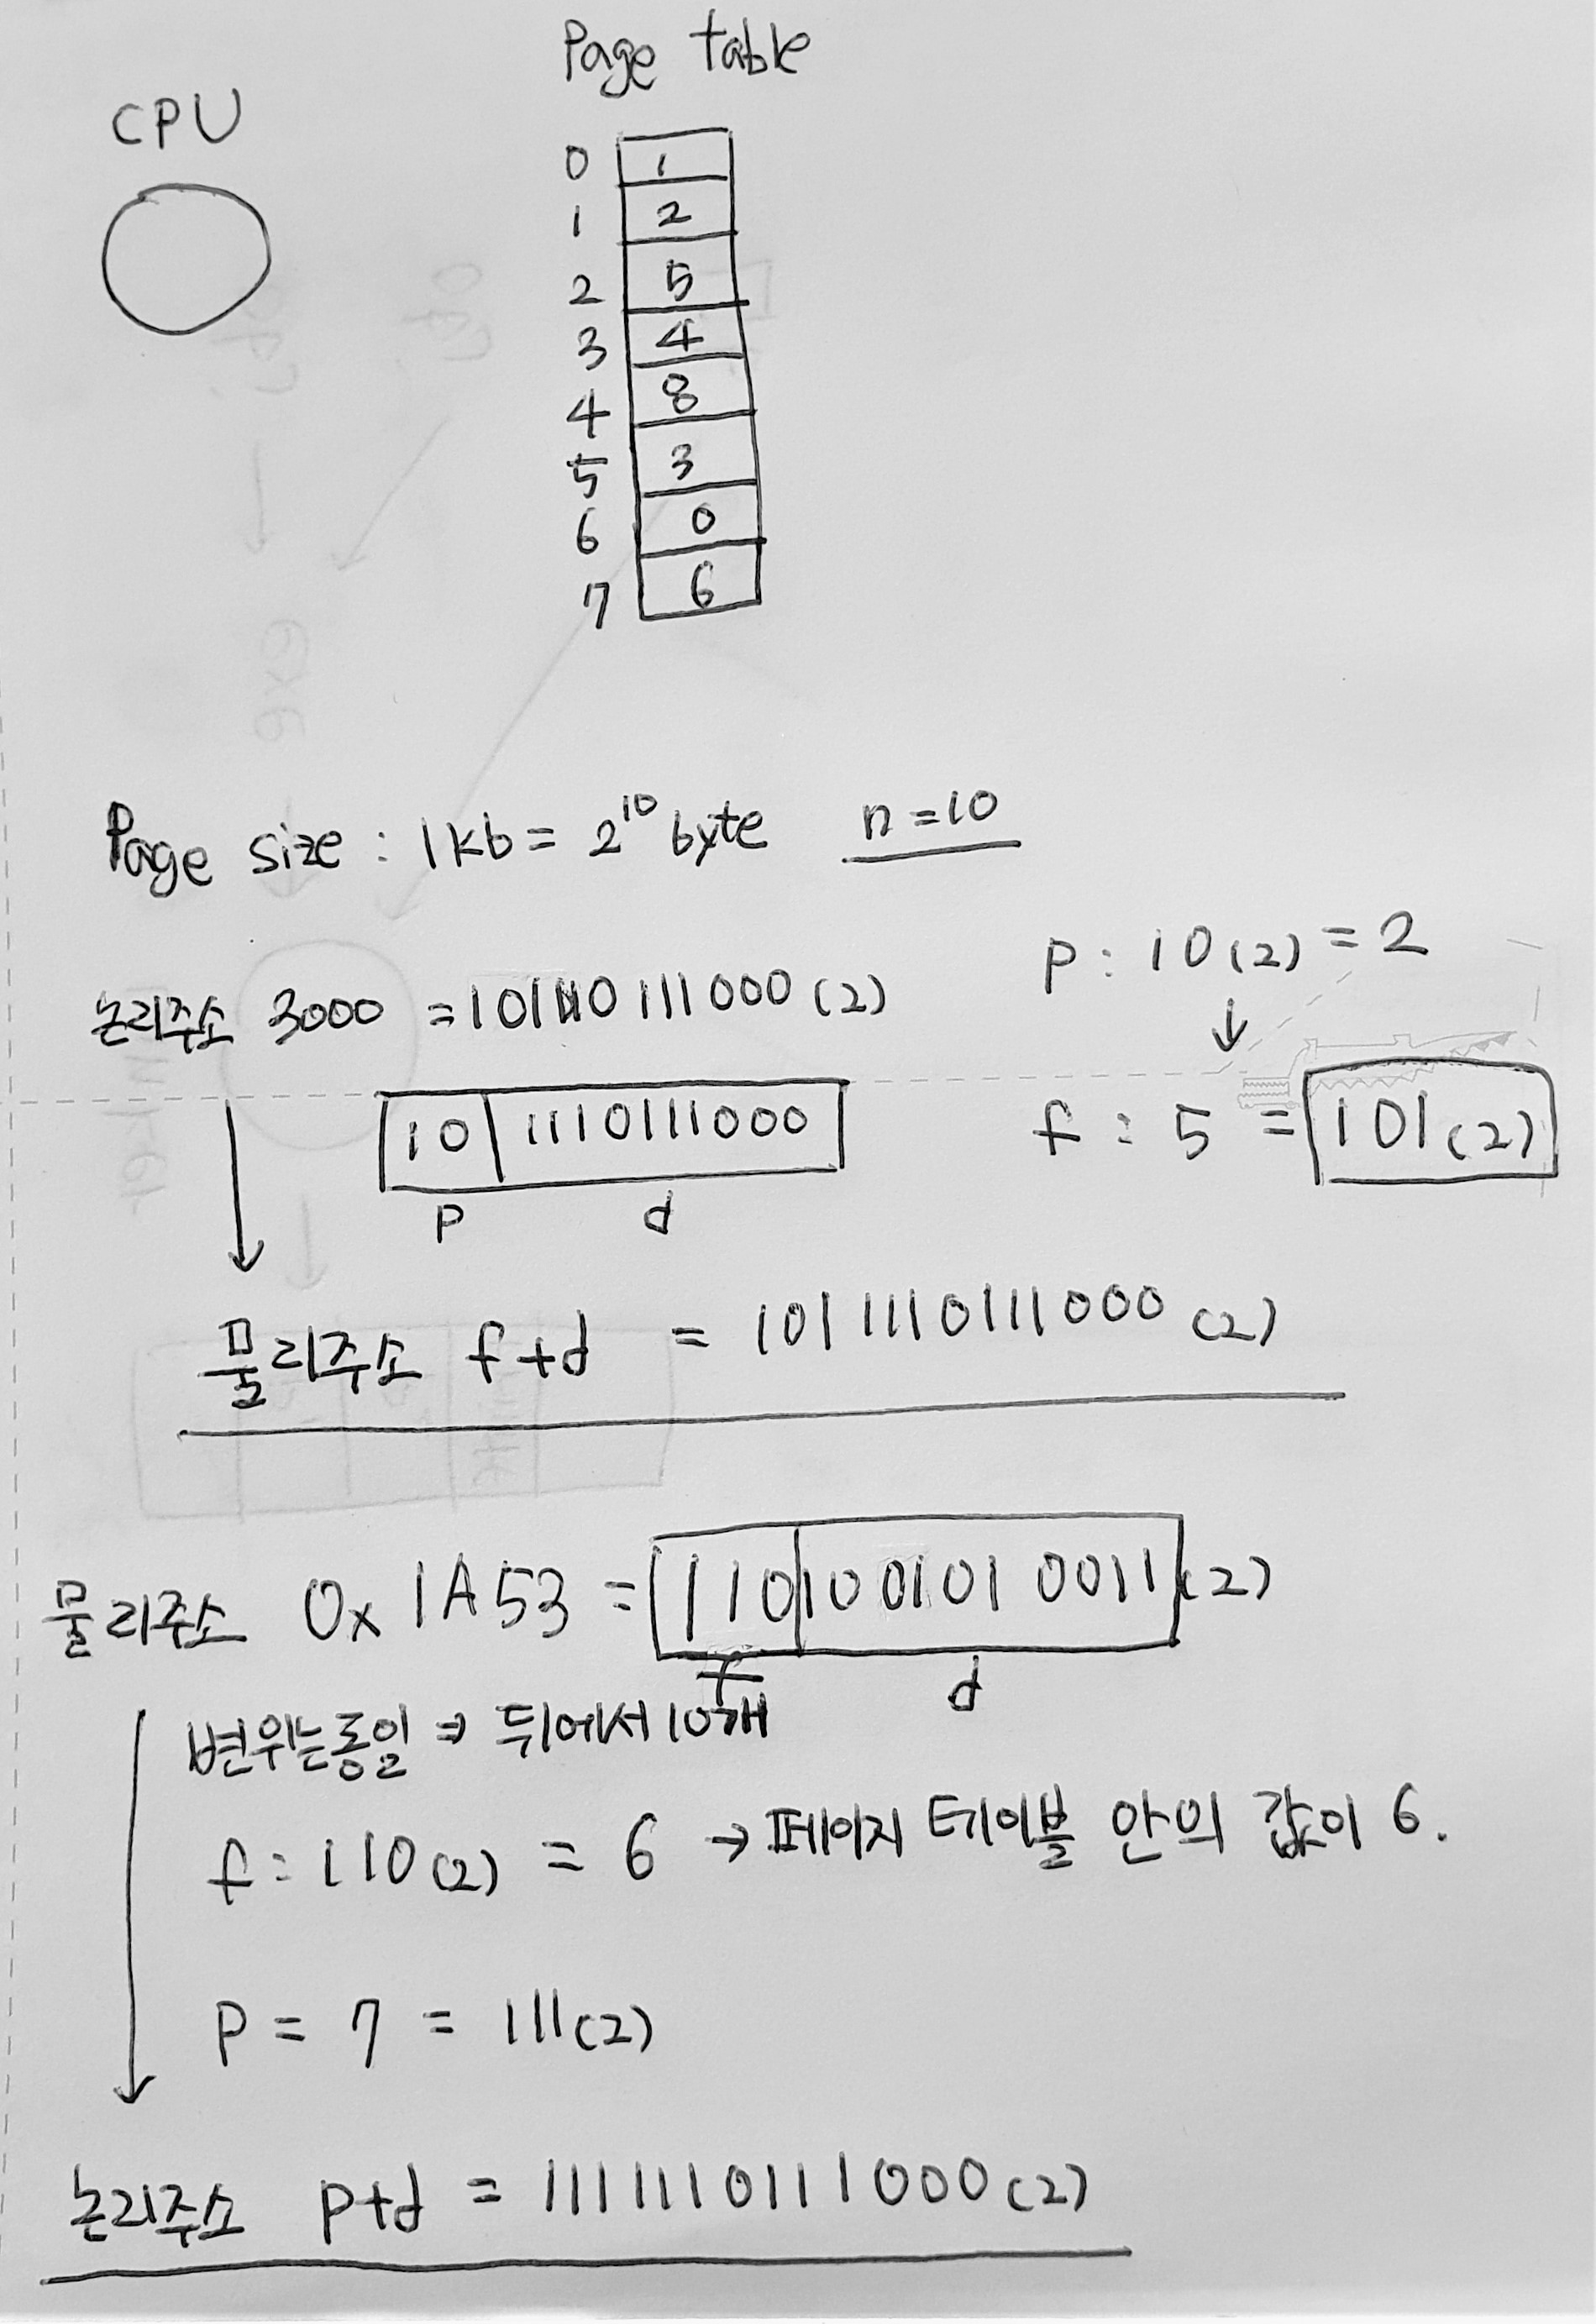 Page table
CPU
0 1
1 2
2 5
3 4
4 8
5 3
6 0
7 6
Page size : 1kb = 2^10 byte n=10
p : 10(2) = 2
논리주소 3000 = 101110111000(2)
10 1110111000
f : 5 = 101(2)
p d
물리주소 f+d = 1011110111000(2)
물리주소 0x1A53 = 110 1001010011(2)
f d
변위는 동일 ⇒ 뒤에서 10개
f : 110(2) = 6 → 페이지 테이블 안의 값이 6.
P = 7 = 111(2)
논리주소 p+d = 1111110111000(2)